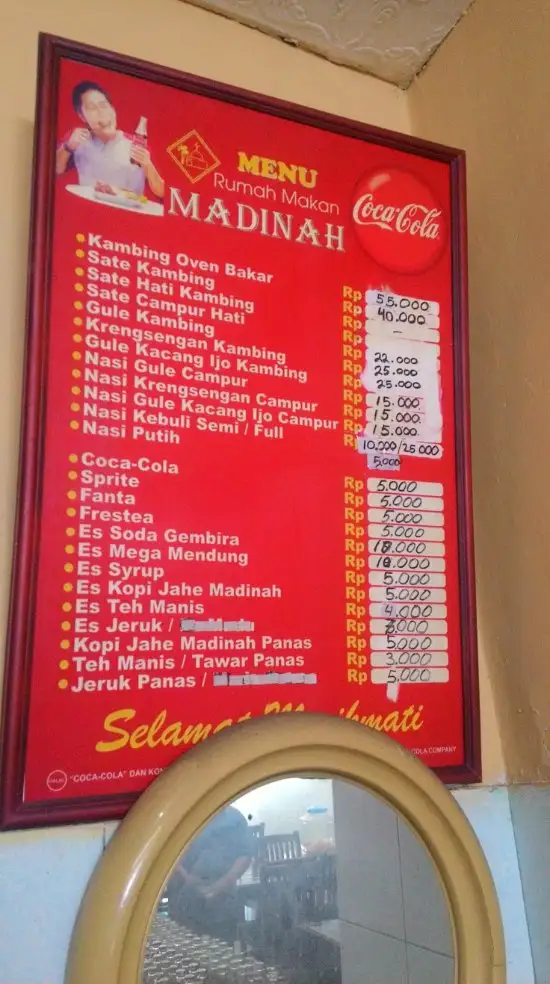 MENU
Rumah Makan
MADINAH
Coca-Cola
Kambing Oven Bakar Rp 55.000
Sate Kambing Rp 40.000
Sate Hati Kambing Rp -
Sate Campur Hati Rp
Gule Kambing Rp 22.000
Krengsengan Kambing Rp 25.000
Gule Kacang Ijo Kambing Rp 25.000
Nasi Gule Campur Rp 15.000
Nasi Krengsengan Campur Rp 15.000
Nasi Gule Kacang Ijo Campur Rp 15.000
Nasi Kebuli Semi / Full Rp 10.000/25.000
Nasi Putih 5.000
Coca-Cola Rp 5.000
Sprite Rp 5.000
Fanta Rp 5.000
Frestea Rp 5.000
Es Soda Gembira Rp
Es Mega Mendung Rp
Es Syrup Rp 5.000
Es Kopi Jahe Madinah Rp 5.000
Es Teh Manis Rp 4.000
Es Jeruk / Rp
Kopi Jahe Madinah Panas Rp 5.000
Teh Manis / Tawar Panas Rp 3.000
Jeruk Panas / Rp 5.000
HALAL "COCA-COLA" DAN COLA COMPANY